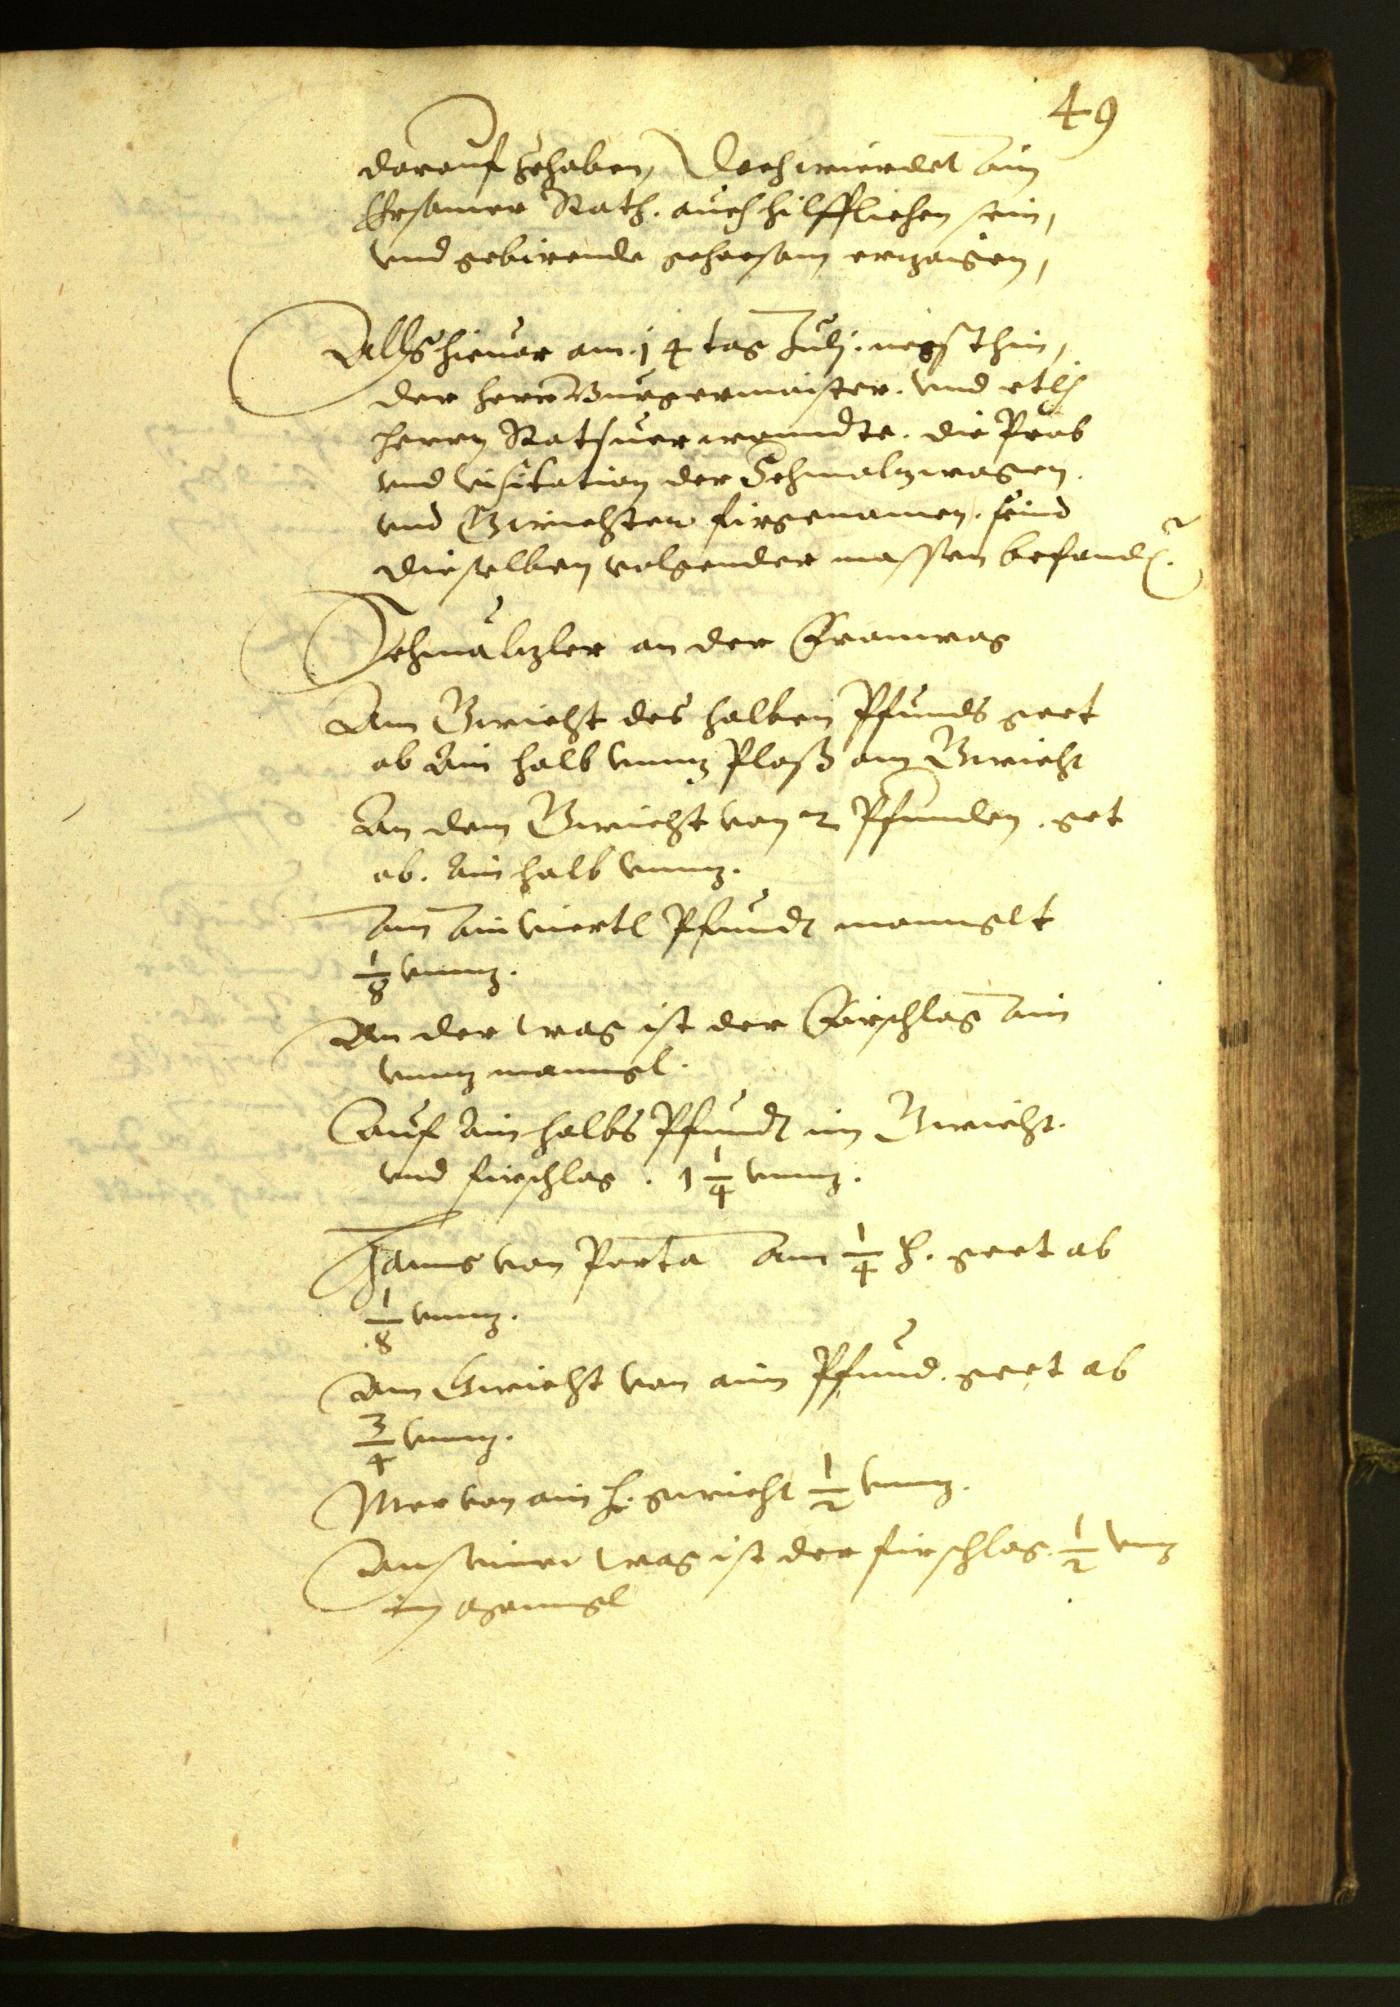 49
darauf zehaben, Doch wierdet ain
Ersamer Rath. auch hilfflichen sein,
vnd gebirende gehorsam erzaigen,
Alls hieuor am .14 tag Julj. negsthin,
der herr Burgermaister. vnd etlich
herrn Ratsuerwanndte. die Prob
vnd visitation der Schmalzwagen.
vnd Gwichter firgenomen. seind
dieselben volgender massen befanden.
Schmalzler an der Fronwag
Am Gwicht des halben Pfunds geet
ab Ain halb vnnz Ploß am Gwicht
An dem Gwicht von 2 Pfunden. get
ab. Ain halb vnnz.
Am Ain viertl Pfundt manngelt
1/8 vnnz.
An der wag ist der Fürschlag Ain
vnnz manngel.
Auf Ain halbs Pfundt im Gwicht.
vnd firschlag . 1 1/4 vnnz.
Hanns von Porta Am 1/4 ℔. geet ab
1/8 vnnz.
Am Gwicht von aim Pfund. geet ab
3/4 vnnz.
Mer von aim ℔. gewicht 1/2 vnnz.
An seiner wag ist der firschlag. 1/2 vnz
im manngel